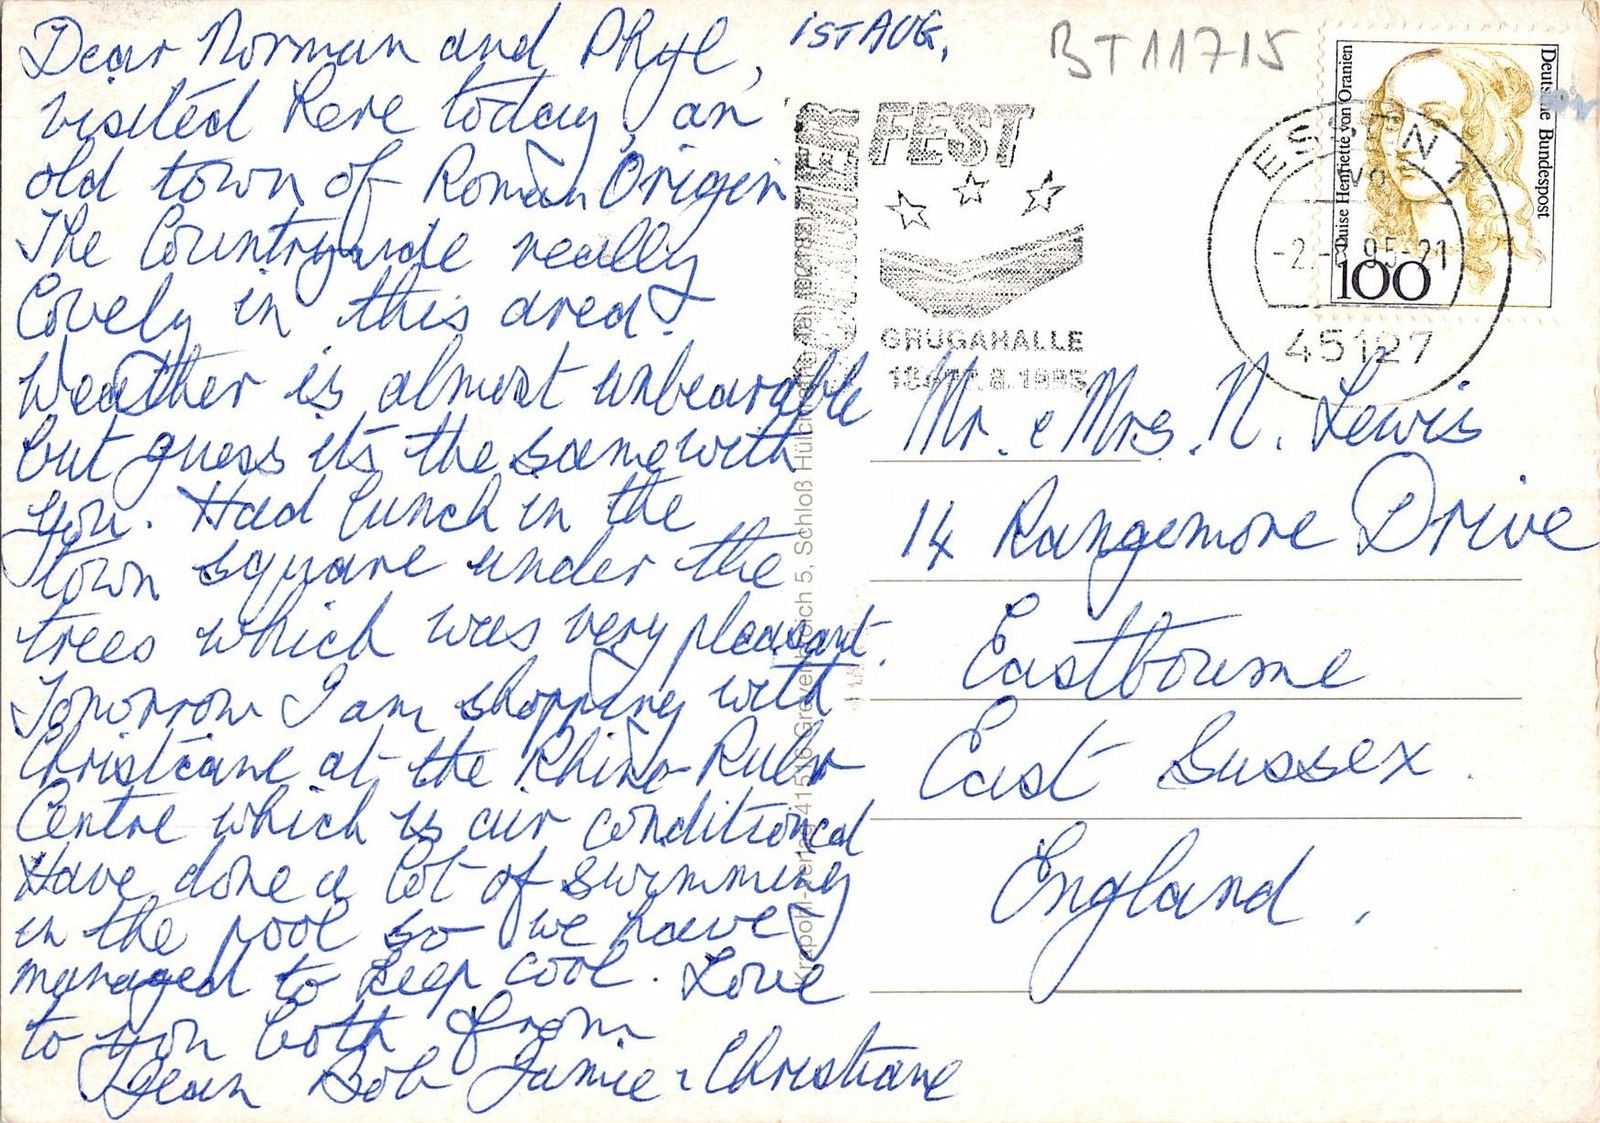 Dear Norman and Phyl,
1ST AUG,
visited here today, an
old town of Roman Origin
The Countryside really
lovely in this area.
Weather is almost unbearable
but guess its the same with
you. Had lunch in the
town square under the
trees which was very pleasant.
Tomorrow I am shopping with
Christiane at the Rhine-Ruhr
Centre which is air conditioned
Have done a lot of swimming
in the pool so we have
managed to keep cool. Love
to you both from
Jean Bob Jamie & Christiane
BT11715
SOMMER
FEST
GRUGAHALLE
8.1995
ESSEN 1
95-21
45127
Deutsche Bundespost
Luise Henriette von Oranien
100
Mr. & Mrs. N. Lewis
14 Rangemore Drive
Eastbourne
East Sussex.
England.
41516 Grevenbroich 5, Schloß